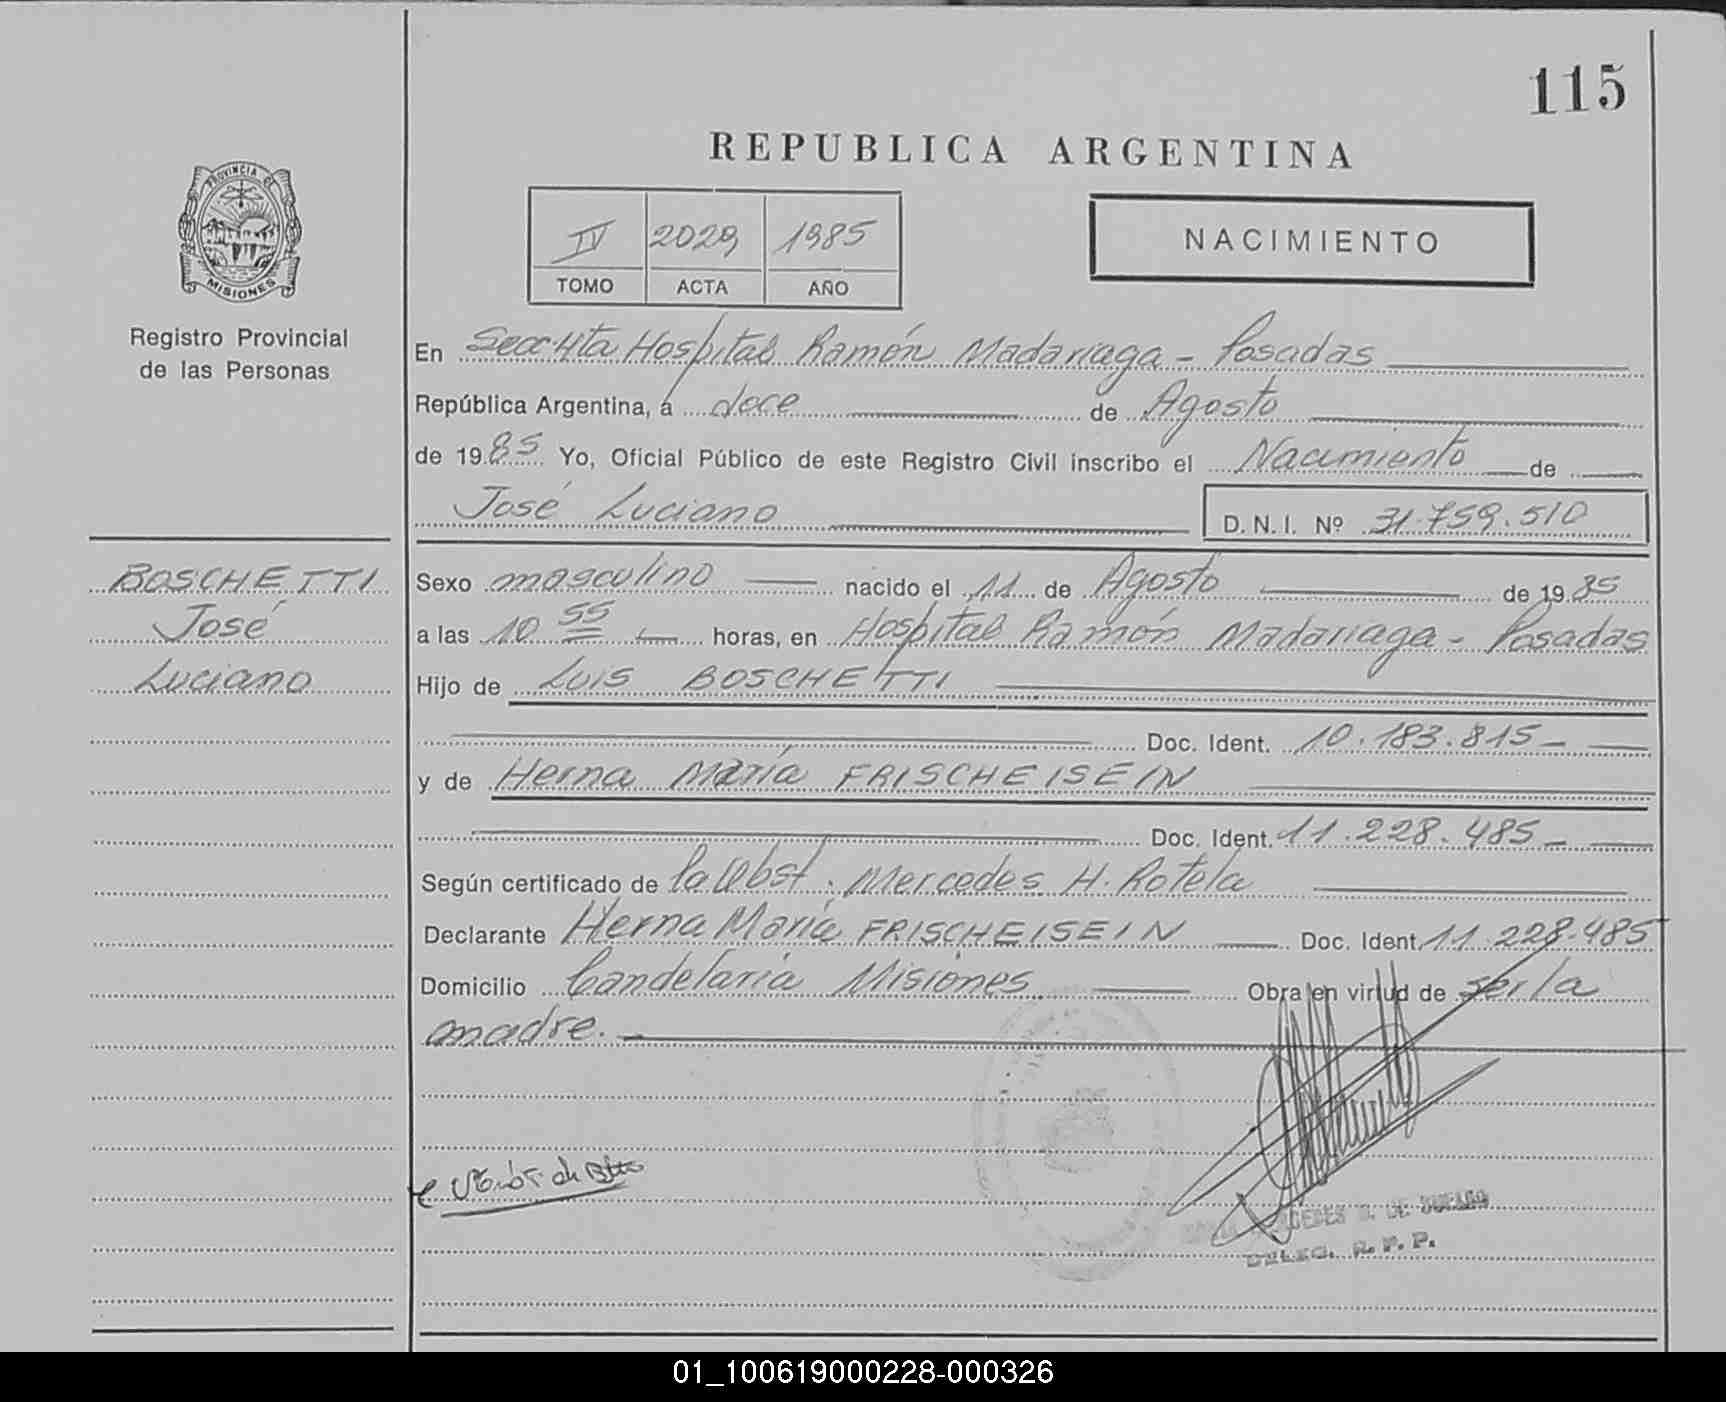 115
REPUBLICA ARGENTINA
PROVINCIA DE
MISIONES
Registro Provincial
de las Personas
IV 2029 1985
TOMO ACTA AÑO
NACIMIENTO
En Secc 4ta Hospital Ramón Madariaga - Posadas
República Argentina, a doce de Agosto
de 1985 Yo, Oficial Público de este Registro Civil inscribo el Nacimiento de
José Luciano D.N.I. Nº 31.759.510
BOSCHETTI
José
Luciano
Sexo masculino nacido el 11 de Agosto de 1985
a las 10 55 horas, en Hospital Ramón Madariaga - Posadas
Hijo de LUIS BOSCHETTI
Doc. Ident. 10.183.815 -
y de Herna María FRISCHEISEIN
Doc. Ident. 11.228.485 -
Según certificado de la Obst. Mercedes H. Rotela
Declarante Herna María FRISCHEISEIN Doc. Ident. 11.228.485
Domicilio Candelaria Misiones Obra en virtud de ser la
madre. -
DELEG. R. P. P.
01_100619000228-000326